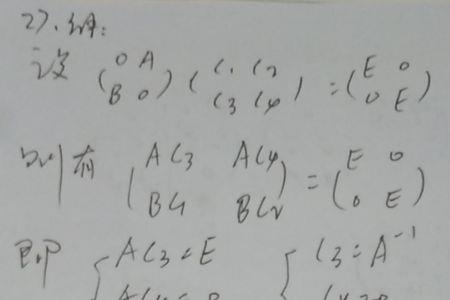 27. 解:
设 (0 A B 0) (C1 C2 C3 C4) = (E 0 0 E)
则有 (AC3 AC4 BC1 BC2) = (E 0 0 E)
即 { AC3 = E { C3 = A^-1
AC4 = 0 C4 = 0